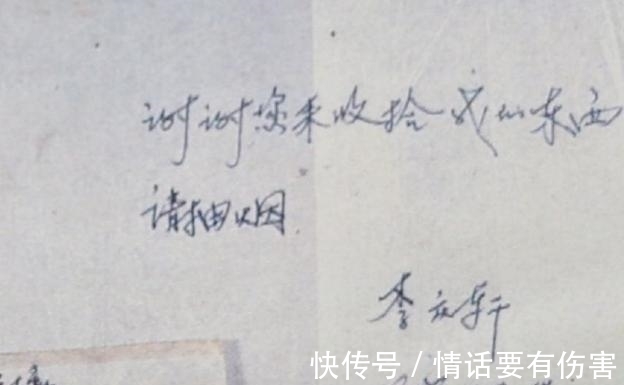 谢谢您来收拾我的东西
请抽烟
李庆轩
快传号/情话要有伤害